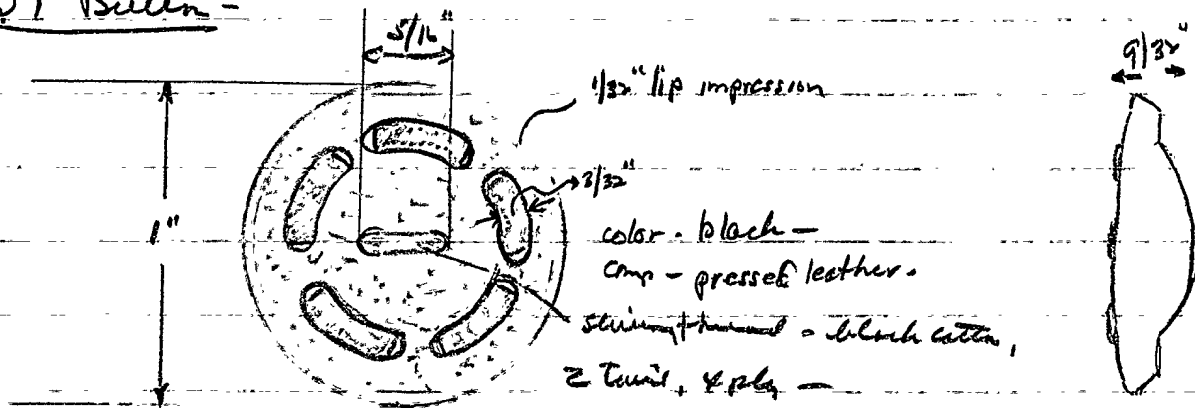 Button -
5/16"
9/32"
1/32" lip impression
3/32"
1"
color - black -
comp - pressed leather.
- black cotton,
Z Twist, 4 ply -